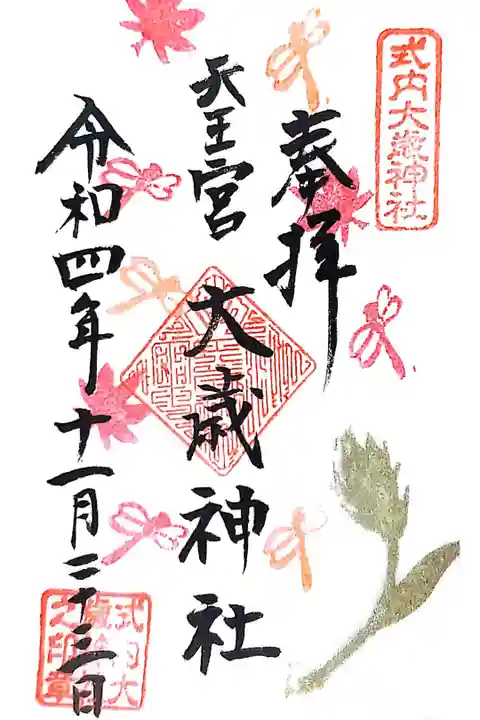 式内大歳神社
奉拝
天王宮
大歳神社
令和四年十一月二十三日
式内大
歳神社
之印章